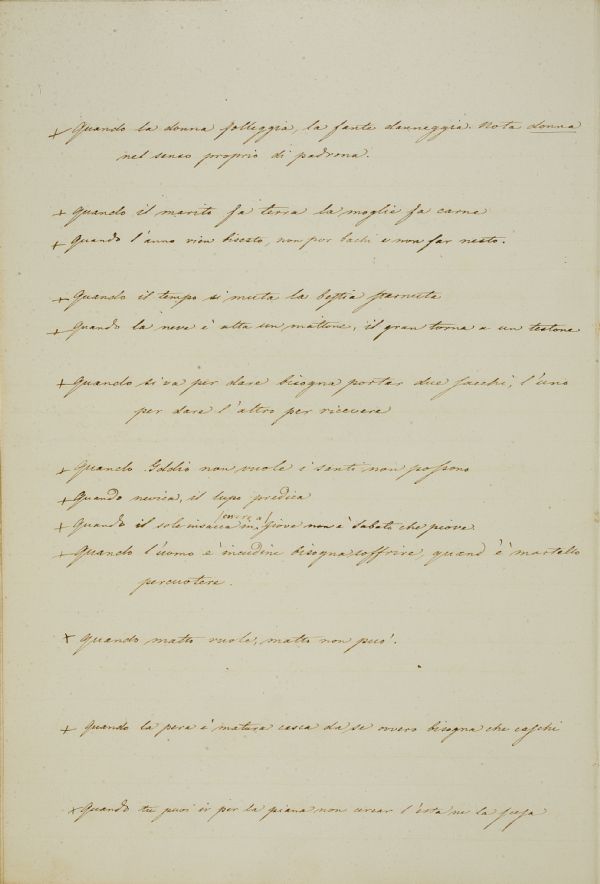 + Quando la donna folleggia, la fante danneggia. Nota donna
nel senso proprio di padrona.
+ Quando il marito fa terra la moglie fa carne
+ Quando l'anno vien bisesto, non por bachi e non far nesto.
+ Quando il tempo si muta la bestia starnuta
+ Quando la neve è alta un mattone, il gran torna a un testone
+ Quando si va per dare bisogna portar due sacchi, l'uno
per dare l'altro per ricevere
+ Quando Iddio non vuole i santi non possono
+ Quando nevica, il lupo predica
(ovvero a)
+ Quando il sole insacca in Giove non è Sabato che piove
+ Quando l'uomo è incudine bisogna soffrire, quand'è martello
percuotere.
+ Quando matto vuole, matto non può.
+ Quando la pera è matura casca da se ovvero bisogna che caschi
+ Quando tu puoi ir per la piana non cercar l'erta ne la scesa